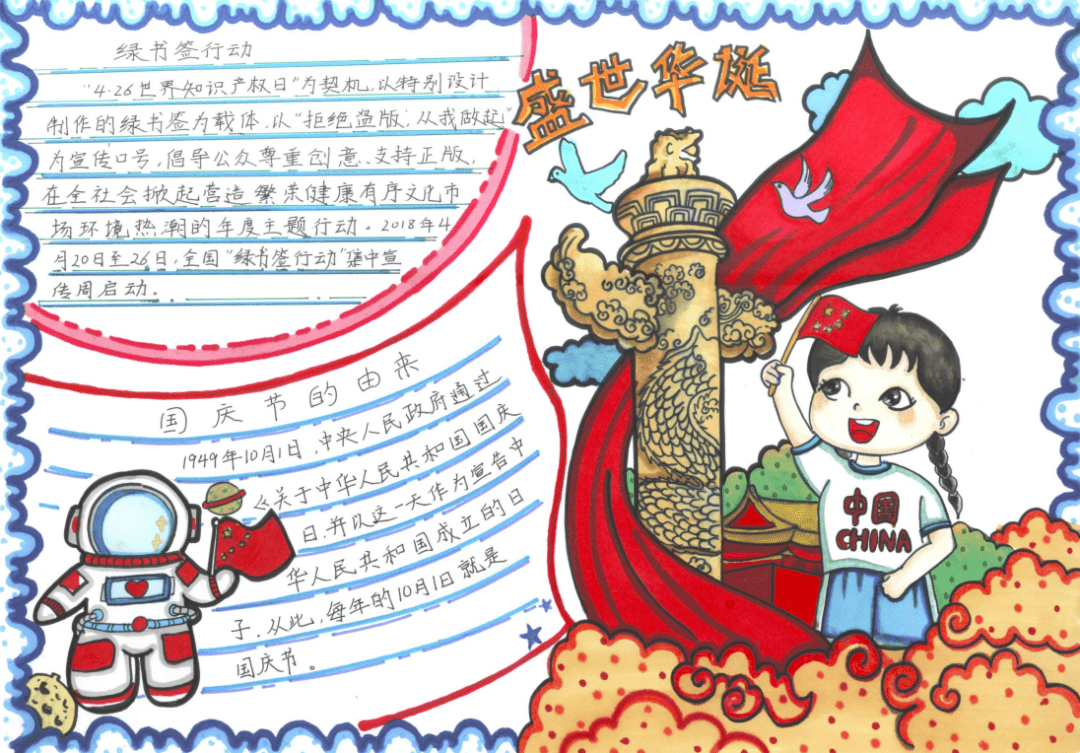 绿书签行动
"4·26世界知识产权日"为契机，以特别设计
制作的绿书签为载体，以"拒绝盗版，从我做起"
为宣传口号，倡导公众尊重创意、支持正版，
在全社会掀起营造繁荣健康有序文化市
场环境热潮的年度主题行动。2018年4
月20日至26日，全国"绿书签行动"集中宣
传周启动。
盛世华诞
国庆节的由来
1949年10月1日，中央人民政府通过
《关于中华人民共和国国庆
日，并以这一天作为宣告中
华人民共和国成立的日
子。从此，每年的10月1日就是
国庆节。
中国
CHINA